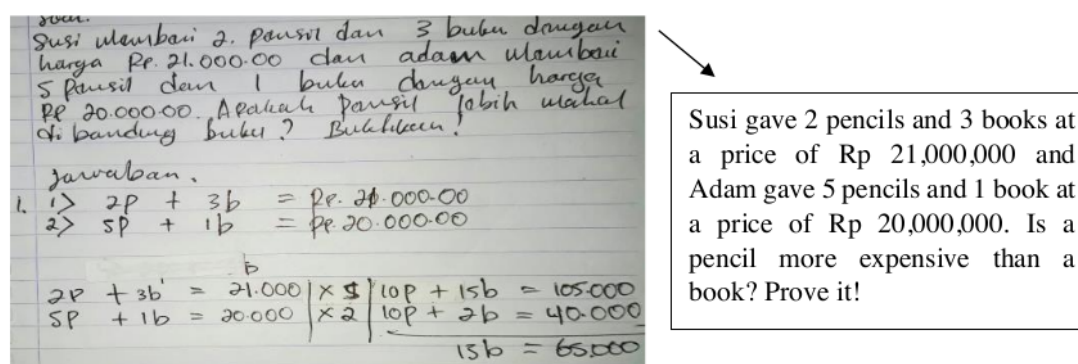 soal.
Susi membari 2. pansil dan 3 buku dangan
harga Rp. 21.000.00 dan adam mambari
5 pansil dan 1 buku dangan harga
Rp 20.000.00. Apakah pansil labih mahal
di bandung buku? Buktikan!
Jawaban.
1. 1> 2p + 3b = Rp. 21.000.00
2> 5p + 1b = Rp. 20.000.00
b
2p + 3b = 21.000 | x 5 | 10p + 15b = 105.000
5p + 1b = 20.000 | x 2 | 10p + 2b = 40.000
13b = 65.000
Susi gave 2 pencils and 3 books at
a price of Rp 21,000,000 and
Adam gave 5 pencils and 1 book at
a price of Rp 20,000,000. Is a
pencil more expensive than a
book? Prove it!